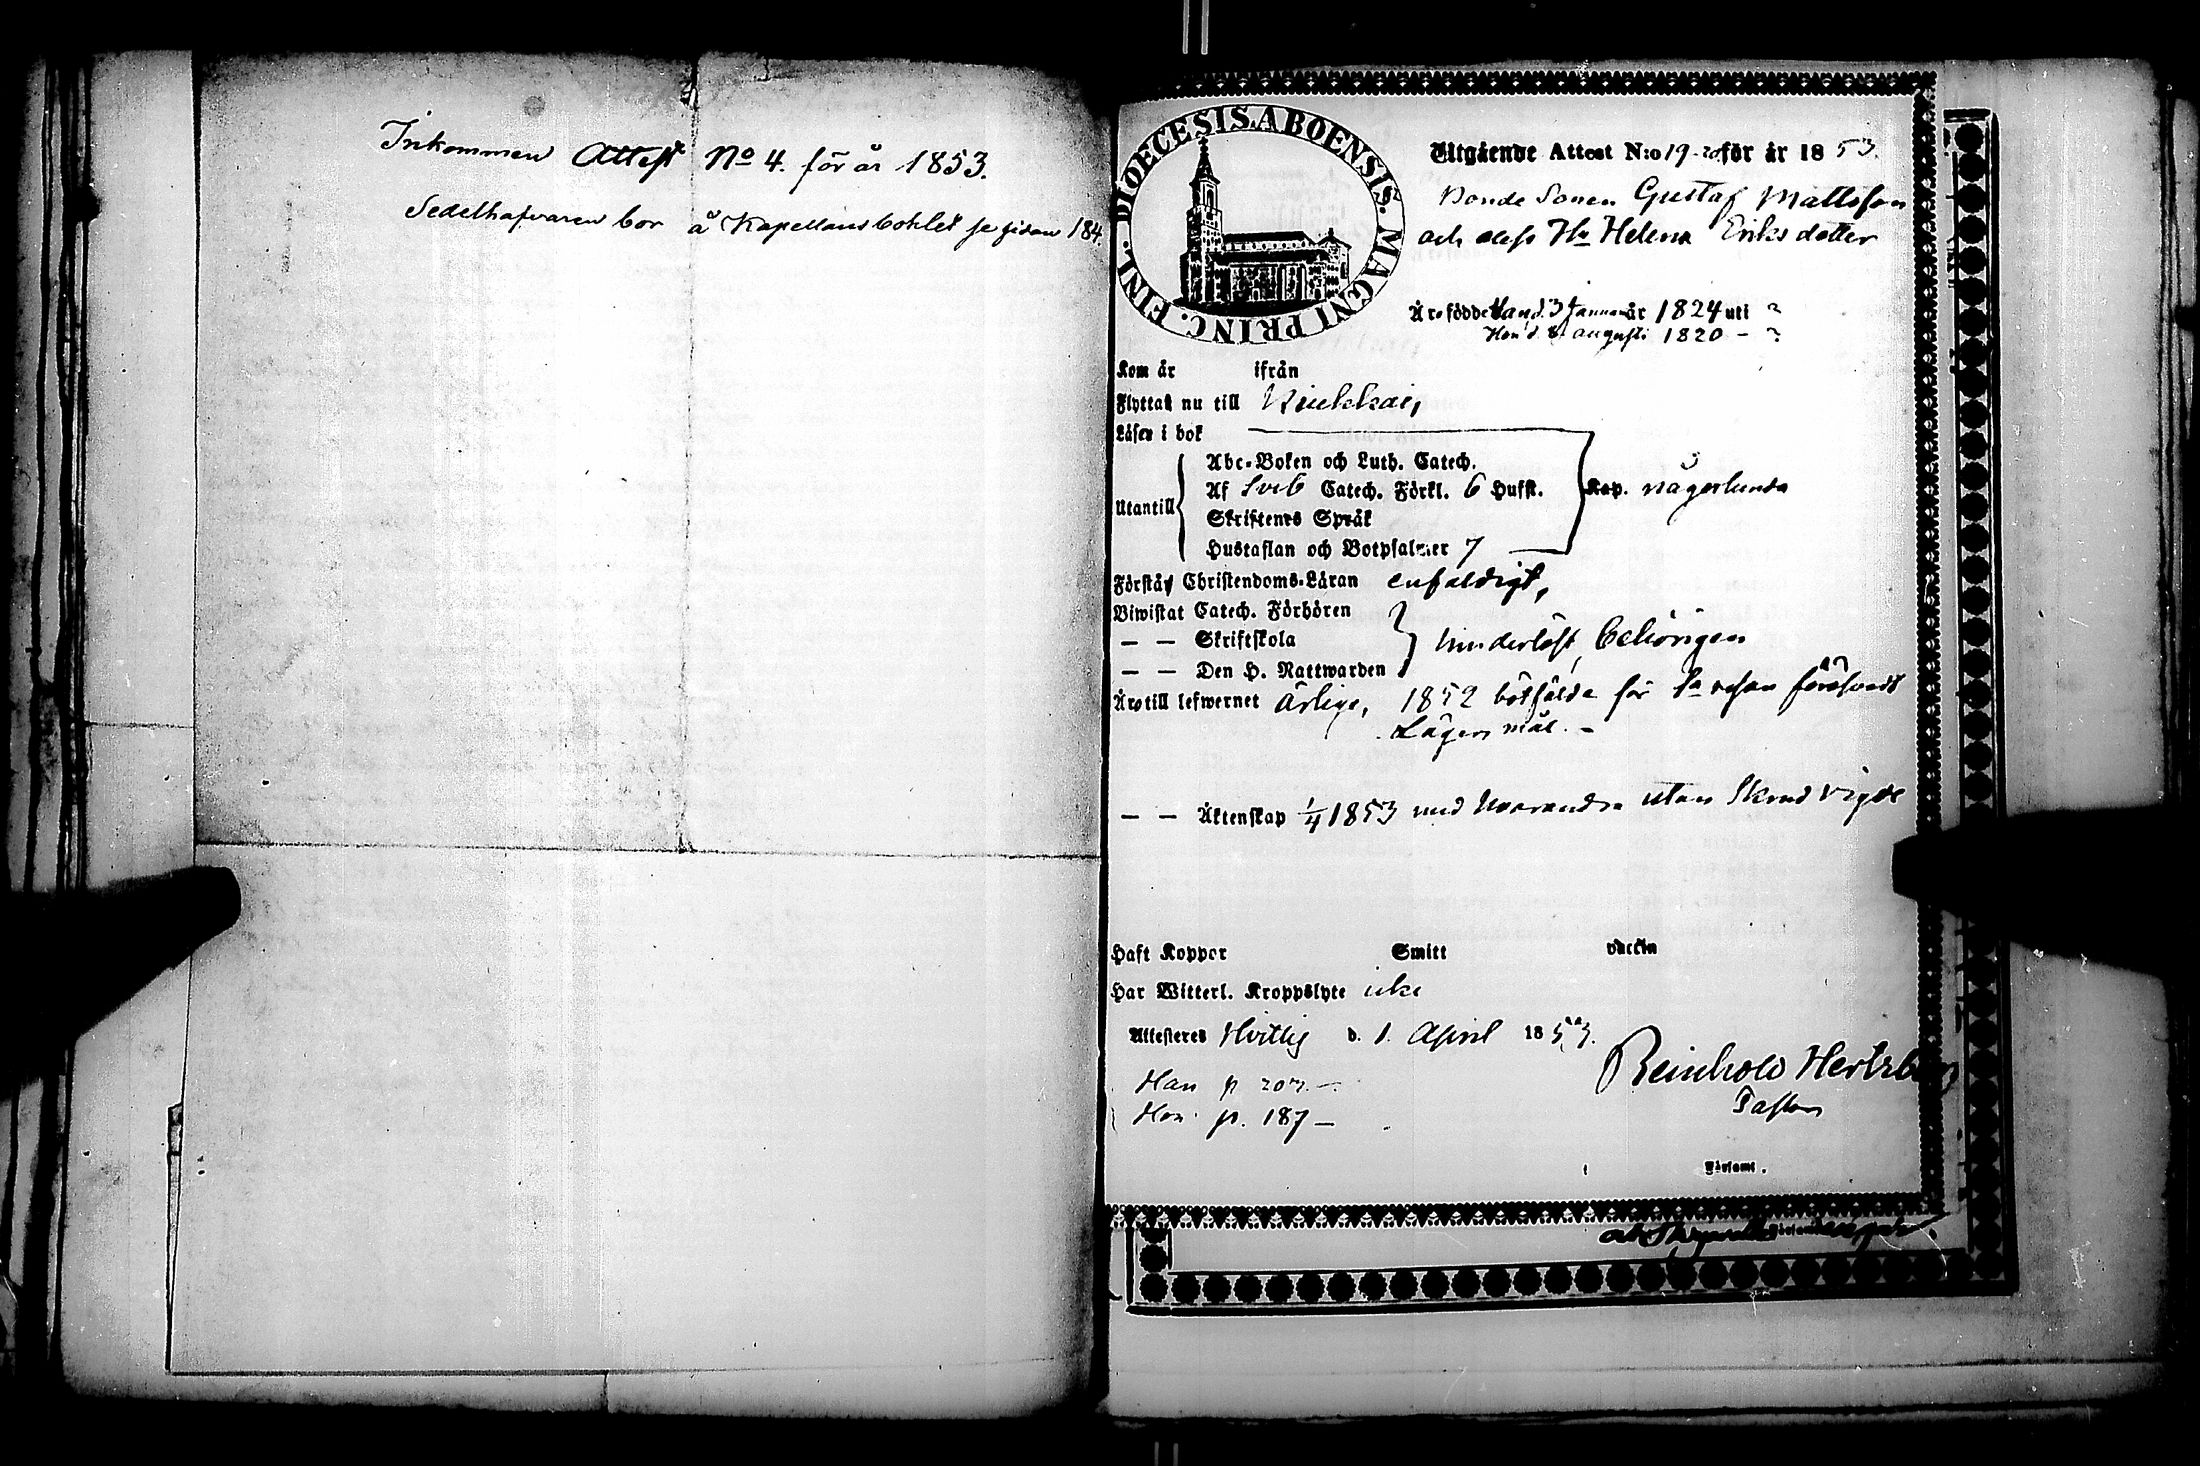 Inkommen Attest No 4. för år 1853.
Sedelhafvaren bor å Kapellansbohlet se sidan 184.
DIOECESIS ABOENSIS. MAGNI PRINC. FINL.
Utgående Attest N:o 19-20 för år 1853.
Bonde Sonen Gustaf Mattsson
och dess Hu Helena Eriksdotter
Äro födde Han d. 3 Januari år 1824 uti ?
Hon d. 8 augusti 1820 - ?
Kom år ifrån
Flyttat nu till Kiukkais,
Läser i bok
Utantill
Abc-Boken och Luth. Catech.
Af Sveb Catech. Förkl. 6 Hufst.
Skriftenes Språk
Hustaflan och Botpsalmer 7
Kap. någorlunda
Förstår Christendoms-Läran enfaldigt,
Biwistat Catech. Förhören
— — Skriftskola
— — Den H. Nattwarden
hinderlöst behörigen
Äro till lefwernet Ärlige, 1852 bötfälde för 1a resan föröfvadt
Lägersmål. -
— — Äktenskap 1/4 1853 med hvarandra utan Skrud vigde
Haft Koppor Smitt vaccin
Har Witterl. Kroppslyte icke
Attesteres Hvittis d. 1. April 1853.
Reinhold Hertzberg
Pastor
Han p 207. -
Hon p. 187 -
Församl.